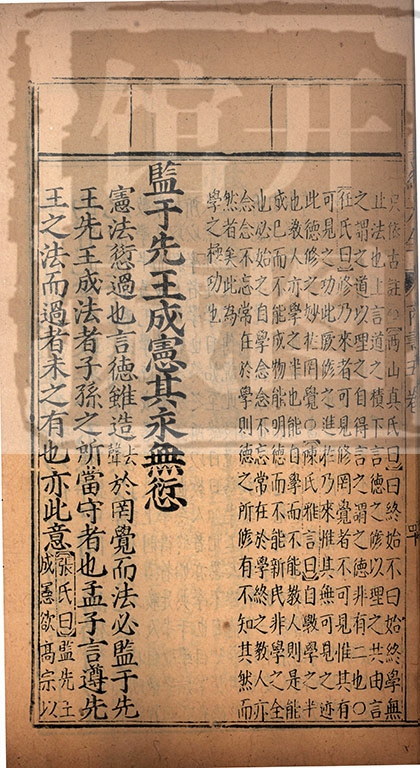 只依古註○西山真氏曰終始不曰始終學無
止法也上言道之積下言德之修以理之共由言
之謂之道以理之自得言之謂之德非有二也○
任氏曰修乃來者可見修罔覺者不可見惟其有
可見之功此厥修之進於乃來惟其無可見之迹
此德修之妙於罔覺○陳氏雅言曰自斆學之半
也教人亦學之半也能自學而不能教人則是能
成已而不能成物能明德而不能新民非學之全
也必始之自學念念不忘常在於學終之教人亦
念念不忘常在於學則德之所修有不知其然而
然者矣此為
學之極功也
監于先王成憲其永無愆
憲法愆過也言德雖造去聲於罔覺而法必監于先
王先王成法者子孫之所當守者也孟子言遵先
王之法而過者未之有也亦此意張氏曰監先王
成憲欲高宗以